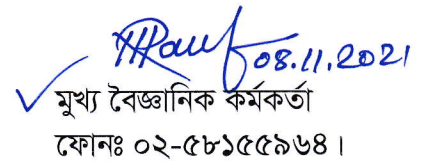 08.11.2021
মুখ্য বৈজ্ঞানিক কর্মকর্তা
ফোনঃ ০২-৫৮১৫৫৯৬৪।